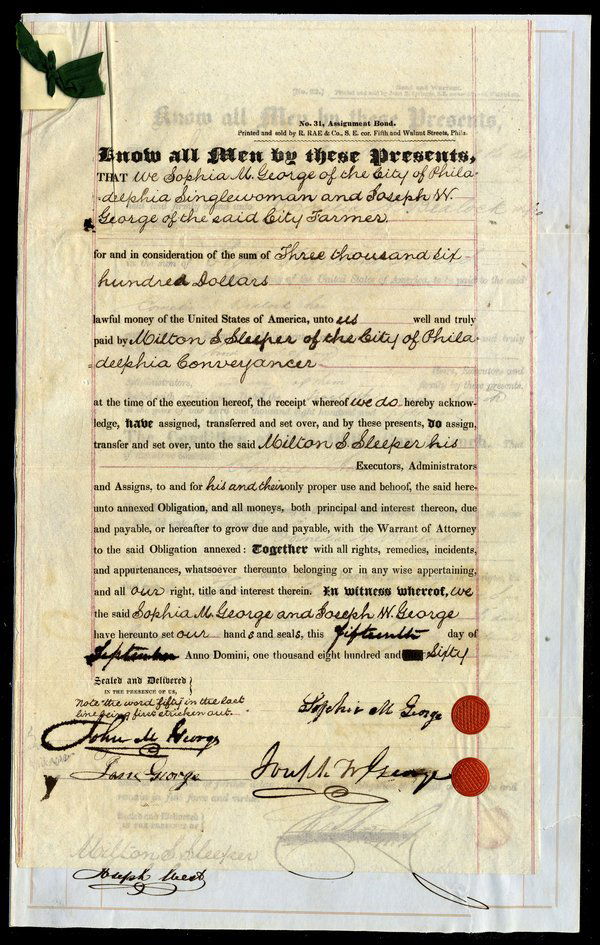 No. 31, Assignment Bond.
Printed and sold by R. RAE & Co., S. E. cor. Fifth and Walnut Streets, Phila.
Know all Men by these Presents,
THAT We Sophia M. George of the City of Phila-
delphia Singlewoman and Joseph W.
George of the said City Farmer
for and in consideration of the sum of Three thousand six
hundred Dollars
lawful money of the United States of America, unto us well and truly
paid by Milton S. Sleeper of the City of Phila-
delphia Conveyancer
at the time of the execution hereof, the receipt whereof we do hereby acknow-
ledge, have assigned, transferred and set over, and by these presents, do assign,
transfer and set over, unto the said Milton S. Sleeper his
Executors, Administrators
and Assigns, to and for his and their only proper use and behoof, the said here-
unto annexed Obligation, and all moneys, both principal and interest thereon, due
and payable, or hereafter to grow due and payable, with the Warrant of Attorney
to the said Obligation annexed: Together with all rights, remedies, incidents,
and appurtenances, whatsoever thereunto belonging or in any wise appertaining,
and all our right, title and interest therein. In witness whereof, we
the said Sophia M. George and Joseph W. George
have hereunto set our hands and seals, this fifteenth day of
September Anno Domini, one thousand eight hundred and Sixty
Sealed and Delivered
IN THE PRESENCE OF US,
Note the word fifty in the last
line being first stricken out.
Sophia M George
John M George
Jane George
Joseph W George
Milton S Sleeper
Joseph West